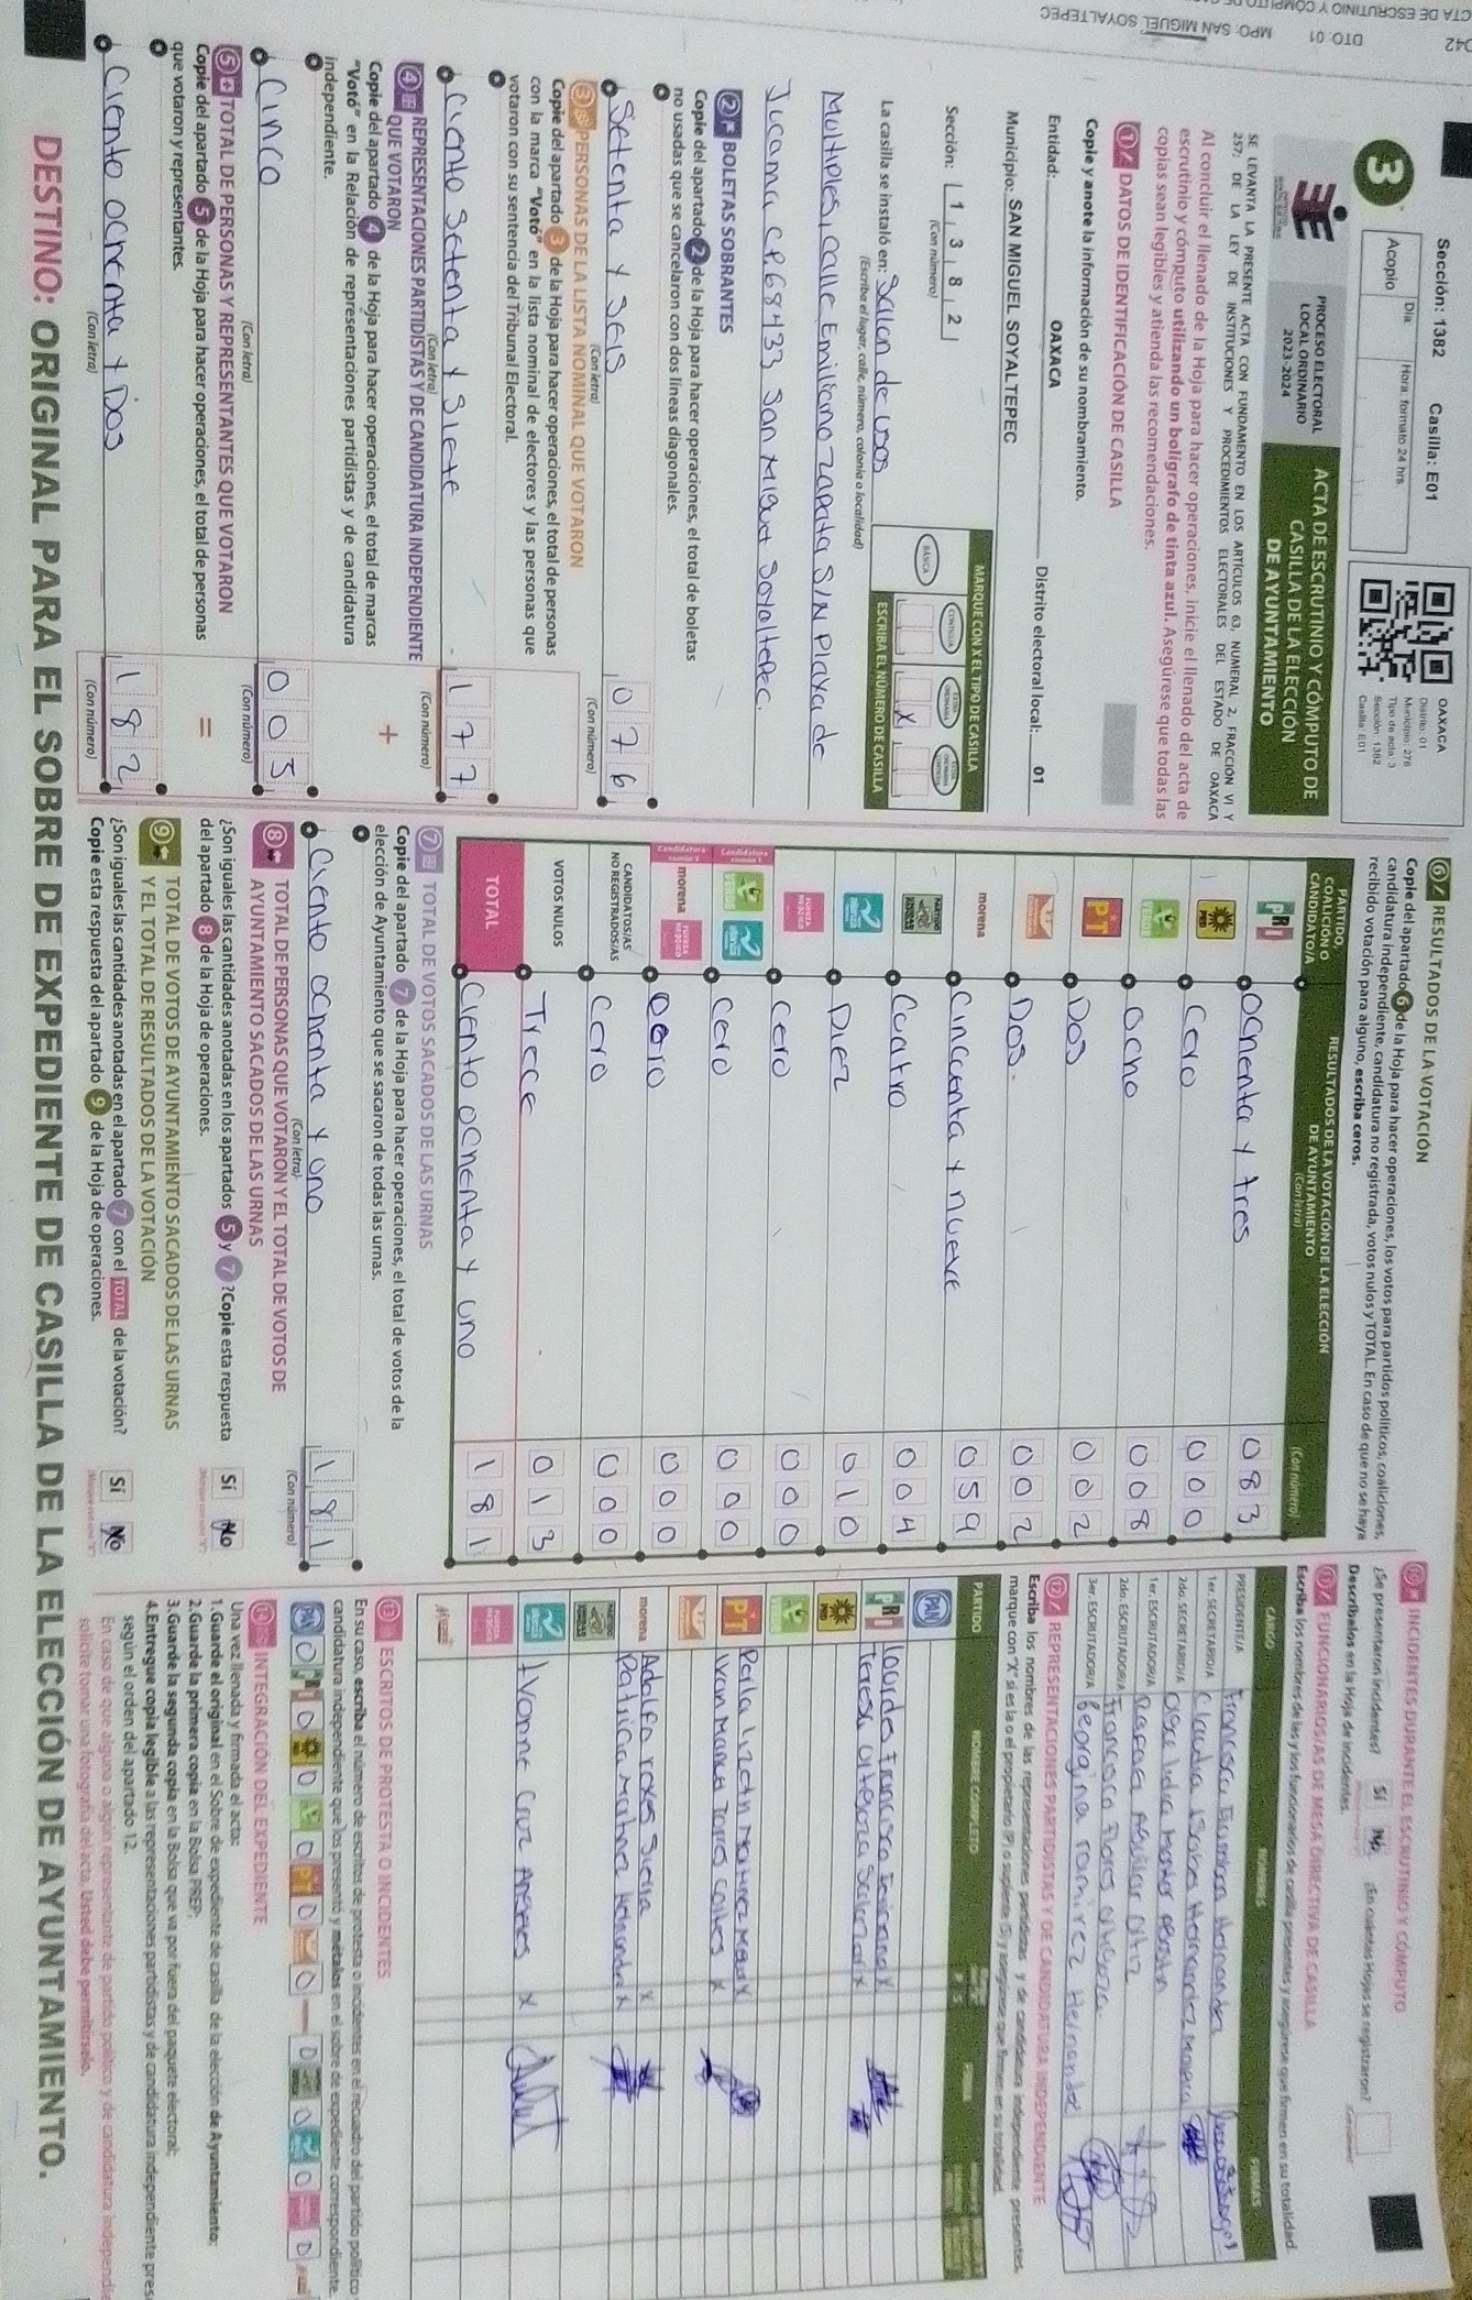 Sección: 1382 Casilla: E01
3
Acopio
Día
Hora: formato 24 hrs.
OAXACA
Distrito: 01
Municipio: 278
Tipo de acta: 3
Sección: 1382
Casilla: E01
PROCESO ELECTORAL
LOCAL ORDINARIO
2023-2024
ACTA DE ESCRUTINIO Y CÓMPUTO DE
CASILLA DE LA ELECCIÓN
DE AYUNTAMIENTO
SE LEVANTA LA PRESENTE ACTA CON FUNDAMENTO EN LOS ARTÍCULOS 63, NUMERAL 2, FRACCIÓN VI Y
257; DE LA LEY DE INSTITUCIONES Y PROCEDIMIENTOS ELECTORALES DEL ESTADO DE OAXACA
Al concluir el llenado de la Hoja para hacer operaciones, inicie el llenado del acta de
escrutinio y cómputo utilizando un bolígrafo de tinta azul. Asegúrese que todas las
copias sean legibles y atienda las recomendaciones.
1 DATOS DE IDENTIFICACIÓN DE CASILLA
Copie y anote la información de su nombramiento.
Entidad: OAXACA Distrito electoral local: 01
Municipio: SAN MIGUEL SOYALTEPEC
Sección: 1 3 8 2
(Con número)
MARQUE CON X EL TIPO DE CASILLA
BÁSICA
X
ESCRIBA EL NÚMERO DE CASILLA
La casilla se instaló en: Salon de usos
(Escriba el lugar, calle, número, colonia o localidad)
Multiples, calle Emiliano Zapata S/N Playa de
Jucama, C.P. 68433 San Miguel Soyaltepec.
2 BOLETAS SOBRANTES
Copie del apartado 2 de la Hoja para hacer operaciones, el total de boletas
no usadas que se cancelaron con dos líneas diagonales.
Setenta y seis 0 7 6
(Con letra) (Con número)
3 PERSONAS DE LA LISTA NOMINAL QUE VOTARON
Copie del apartado 3 de la Hoja para hacer operaciones, el total de personas
con la marca "Votó" en la lista nominal de electores y las personas que
votaron con su sentencia del Tribunal Electoral.
Ciento setenta y siete 1 7 7
(Con letra) (Con número)
4 REPRESENTACIONES PARTIDISTAS Y DE CANDIDATURA INDEPENDIENTE
QUE VOTARON
Copie del apartado 4 de la Hoja para hacer operaciones, el total de marcas
"Votó" en la Relación de representaciones partidistas y de candidatura
independiente.
+
Cinco 0 0 5
(Con letra) (Con número)
5 TOTAL DE PERSONAS Y REPRESENTANTES QUE VOTARON
Copie del apartado 5 de la Hoja para hacer operaciones, el total de personas
que votaron y representantes.
=
Ciento ochenta y Dos 1 8 2
(Con letra) (Con número)
6 RESULTADOS DE LA VOTACIÓN
Copie del apartado 6 de la Hoja para hacer operaciones, los votos para partidos políticos, coaliciones,
candidatura independiente, candidatura no registrada, votos nulos y TOTAL. En caso de que no se haya
recibido votación para alguno, escriba ceros.
PARTIDO,
COALICIÓN O
CANDIDATO/A
RESULTADOS DE LA VOTACIÓN DE LA ELECCIÓN
DE AYUNTAMIENTO
(Con letra) (Con número)
PRI Ochenta y tres 0 8 3
PRD Cero 0 0 0
VERDE Ocho 0 0 8
PT Dos 0 0 2
Dos. 0 0 2
morena Cincuenta y nueve 0 5 9
Cuatro 0 0 4
Diez 0 1 0
Cero 0 0 0
Cero 0 0 0
morena 0 0 0
CANDIDATOS/AS
NO REGISTRADOS/AS
Cero 0 0 0
VOTOS NULOS Trece 0 1 3
TOTAL Ciento ochenta y uno 1 8 1
7 TOTAL DE VOTOS SACADOS DE LAS URNAS
Copie del apartado 7 de la Hoja para hacer operaciones, el total de votos de la
elección de Ayuntamiento que se sacaron de todas las urnas.
Ciento ochenta y uno 1 8 1
(Con letra) (Con número)
8 TOTAL DE PERSONAS QUE VOTARON Y EL TOTAL DE VOTOS DE
AYUNTAMIENTO SACADOS DE LAS URNAS
¿Son iguales las cantidades anotadas en los apartados 5 y 7? Copie esta respuesta
del apartado 8 de la Hoja de operaciones.
Sí No
9 TOTAL DE VOTOS DE AYUNTAMIENTO SACADOS DE LAS URNAS
Y EL TOTAL DE RESULTADOS DE LA VOTACIÓN
¿Son iguales las cantidades anotadas en el apartado 7 con el TOTAL de la votación?
Copie esta respuesta del apartado 9 de la Hoja de operaciones.
Sí No
10 INCIDENTES DURANTE EL ESCRUTINIO Y CÓMPUTO
¿Se presentaron incidentes? Sí No ¿En cuántas Hojas se registraron?
Descríbalos en la Hoja de incidentes.
11 FUNCIONARIOS/AS DE MESA DIRECTIVA DE CASILLA
Escriba los nombres de las y los funcionarios de casilla presentes y asegúrese que firmen en su totalidad.
CARGO NOMBRES FIRMAS
PRESIDENTE/A Francisca
1er. SECRETARIO/A Claudia Isabel Hernandez
2do. SECRETARIO/A
1er. ESCRUTADOR/A Rafael Aguilar Ortiz
2do. ESCRUTADOR/A Francisco Flores
3er. ESCRUTADOR/A Georgina ramirez Hernandez
12 REPRESENTACIONES PARTIDISTAS Y DE CANDIDATURA INDEPENDIENTE
Escriba los nombres de las representaciones partidistas y de candidatura independiente presentes,
marque con "X" si es la o el propietario (P) o suplente (S) y asegúrese que firmen en su totalidad.
PARTIDO NOMBRE COMPLETO FIRMA
PAN
PRI Lourdes Francisco X
Teresa X
PRD
VERDE
PT Perla Lizeth Martinez X
Ivan X
morena Adolfo reyes Sierra X
Patricia X
Ivonne Cruz X
13 ESCRITOS DE PROTESTA O INCIDENTES
En su caso, escriba el número de escritos de protesta o incidentes en el recuadro del partido político
candidatura independiente que los presentó y métalos en el sobre de expediente correspondiente.
14 INTEGRACIÓN DEL EXPEDIENTE
Una vez llenada y firmada el acta:
1. Guarde el original en el Sobre de expediente de casilla de la elección de Ayuntamiento;
2. Guarde la primera copia en la Bolsa PREP;
3. Guarde la segunda copia en la Bolsa que va por fuera del paquete electoral;
4. Entregue copia legible a las representaciones partidistas y de candidatura independiente pres
según el orden del apartado 12.
En caso de que alguna o algún representante de partido político y de candidatura independie
solicite tomar una fotografía del acta. Usted debe permitírselo.
DESTINO: ORIGINAL PARA EL SOBRE DE EXPEDIENTE DE CASILLA DE LA ELECCIÓN DE AYUNTAMIENTO.
042 DTO: 01 MPO: SAN MIGUEL SOYALTEPEC